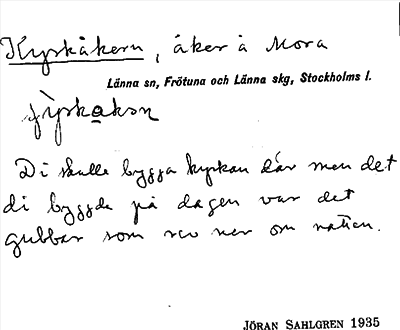 Kyrkåkern, åker å Mora
Länna sn, Frötuna och Länna skg, Stockholms l.
Di skulle bygga kyrkan där men det
di byggde på dagen var det
gubbar som rev ner om natten.
JÖRAN SAHLGREN 1935